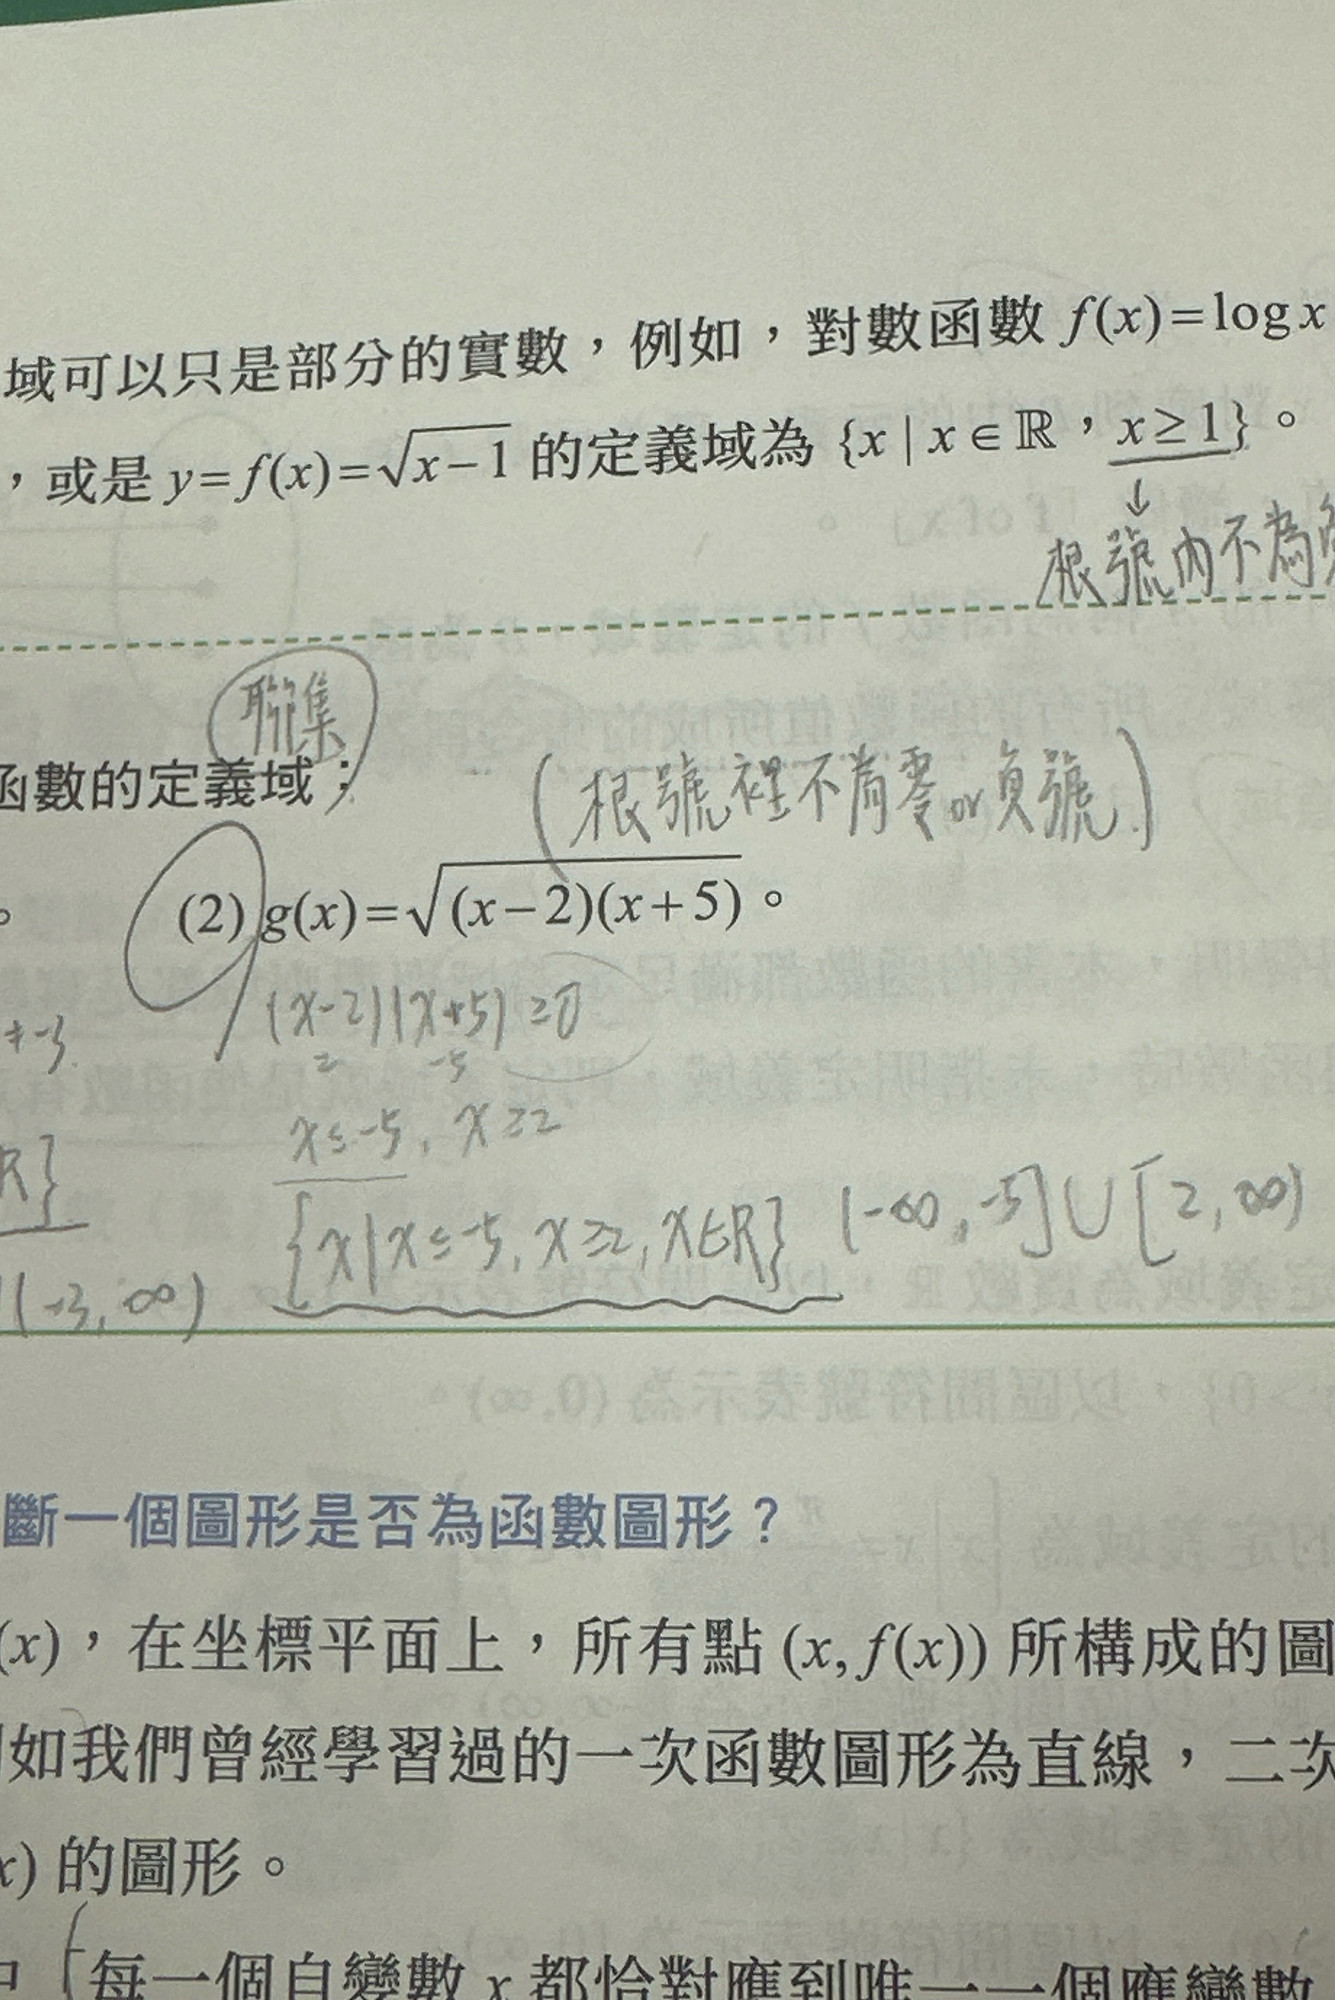 域可以只是部分的實數，例如，對數函數 f(x)=log x
，或是 y=f(x)=√(x−1) 的定義域為 {x | x∈ℝ，x≥1}。
↓
根號內不為負
聯集
函數的定義域：
(根號裡不有零or負號.)
。 (2) g(x)=√((x−2)(x+5))。
(x-2)(x+5)≥0
≠-3
2 -5
x≤-5, x≥2
R}
{x|x≤-5, x≥2, x∈R} (-∞,-5]∪[2,∞)
(-3,∞)
斷一個圖形是否為函數圖形？
(x)，在坐標平面上，所有點 (x, f(x)) 所構成的圖
如我們曾經學習過的一次函數圖形為直線，二次
x) 的圖形。
每一個自變數 x 都恰對應到唯一一個應變數